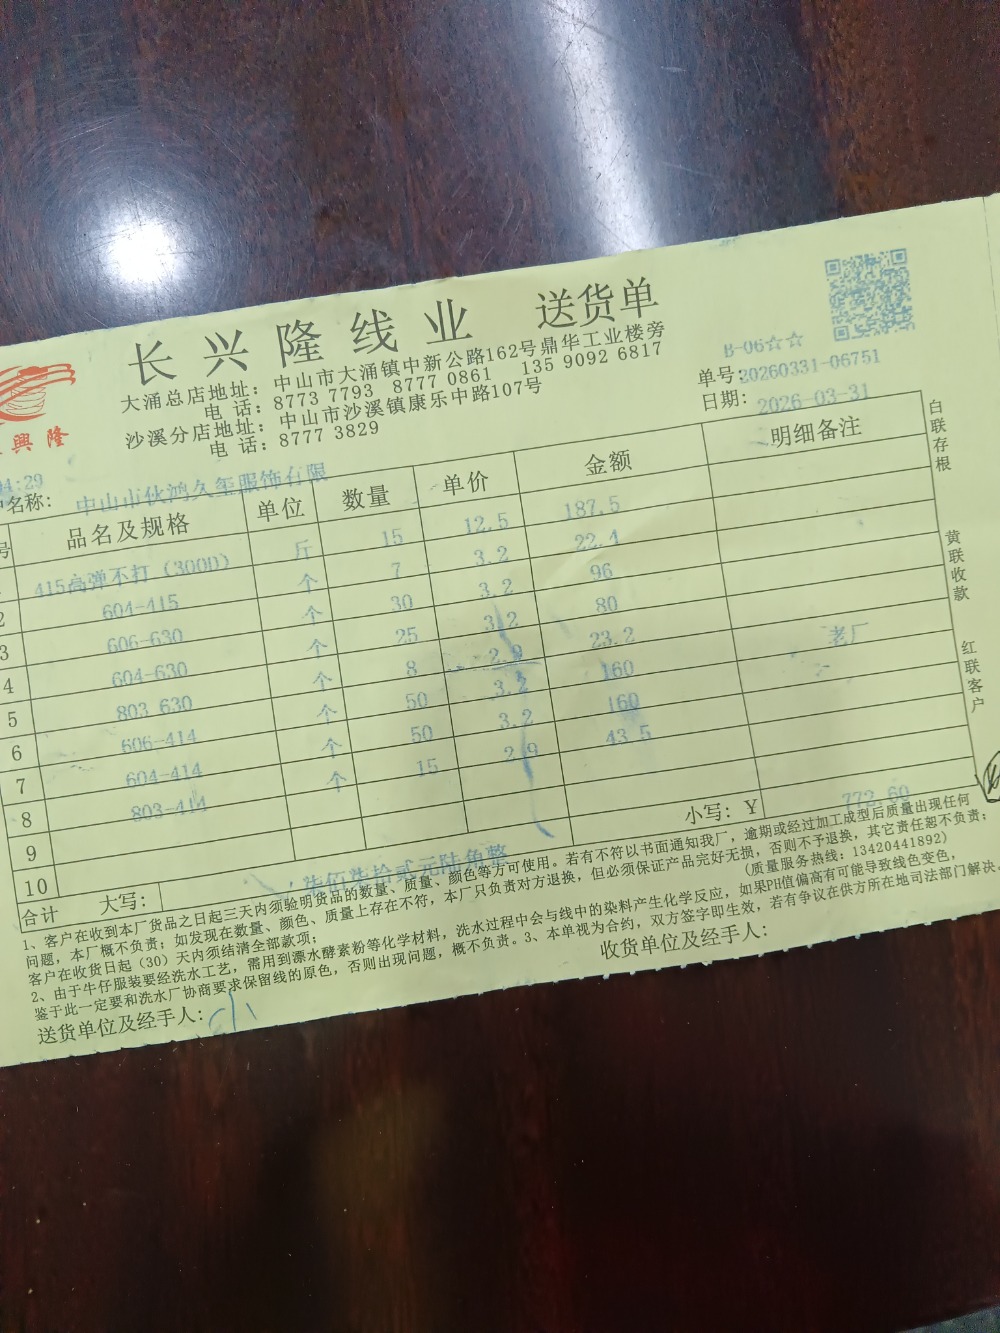 长兴隆线业 送货单
大涌总店地址：中山市大涌镇中新公路162号鼎华工业楼旁
电 话：8773 7793 8777 0861 135 9092 6817
沙溪分店地址：中山市沙溪镇康乐中路107号
电 话：8777 3829
興隆
B-06☆☆
单号:20260331-06751
日期：2026-03-31
4:29
名称：中山市伙鸿久玺服饰有限
号 品名及规格 单位 数量 单价 金额 明细备注
415高弹不打（300D） 斤 15 12.5 187.5
2 604-415 个 7 3.2 22.4
3 606-630 个 30 3.2 96
4 604-630 个 25 3.2 80
5 803 630 个 8 2.9 23.2 老厂
6 606-414 个 50 3.2 160
7 604-414 个 50 3.2 160
8 803-414 个 15 2.9 43.5
9
10
合计 大写：柒佰柒拾贰元陆角整 小写：Y 772.60
1、客户在收到本厂货品之日起三天内须验明货品的数量、质量、颜色等方可使用。若有不符以书面通知我厂，逾期或经过加工成型后质量出现任何
问题，本厂概不负责；如发现在数量、颜色、质量上存在不符，本厂只负责对方退换，但必须保证产品完好无损，否则不予退换，其它责任恕不负责；
客户在收货日起（30）天内须结清全部款项； （质量服务热线：13420441892）
2、由于牛仔服装要经洗水工艺，需用到漂水酵素粉等化学材料，洗水过程中会与线中的染料产生化学反应，如果PH值偏高有可能导致线色变色，
鉴于此一定要和洗水厂协商要求保留线的原色，否则出现问题，概不负责。3、本单视为合约，双方签字即生效，若有争议在供方所在地司法部门解决。
送货单位及经手人： 收货单位及经手人：
白联存根
黄联收款
红联客户